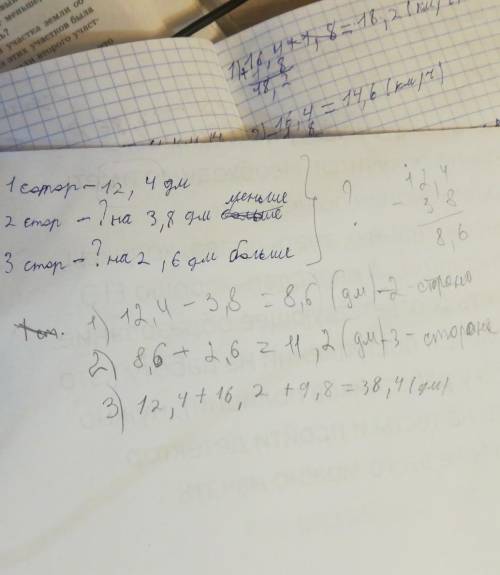 участка земли
этих участков была
второго участ-
1) 16,4 + 1,8 = 18,2 (км/ч)
1,8
18,2
2) 16,4
1,8
= 14,6 (км/ч)
1 стор – 12, 4 дм
меньше
2 стор – ? на 3,8 дм больше
3 стор – ? на 2 ,6 дм больше
?
12,4
- 3,8
8,6
1) 12,4 – 3,8 = 8,6 (дм) – 2 сторона
2) 8,6 + 2,6 = 11 ,2 (дм) – 3 – стороне
3) 12,4 + 16, 2 + 9,8 = 38,4 (дм)